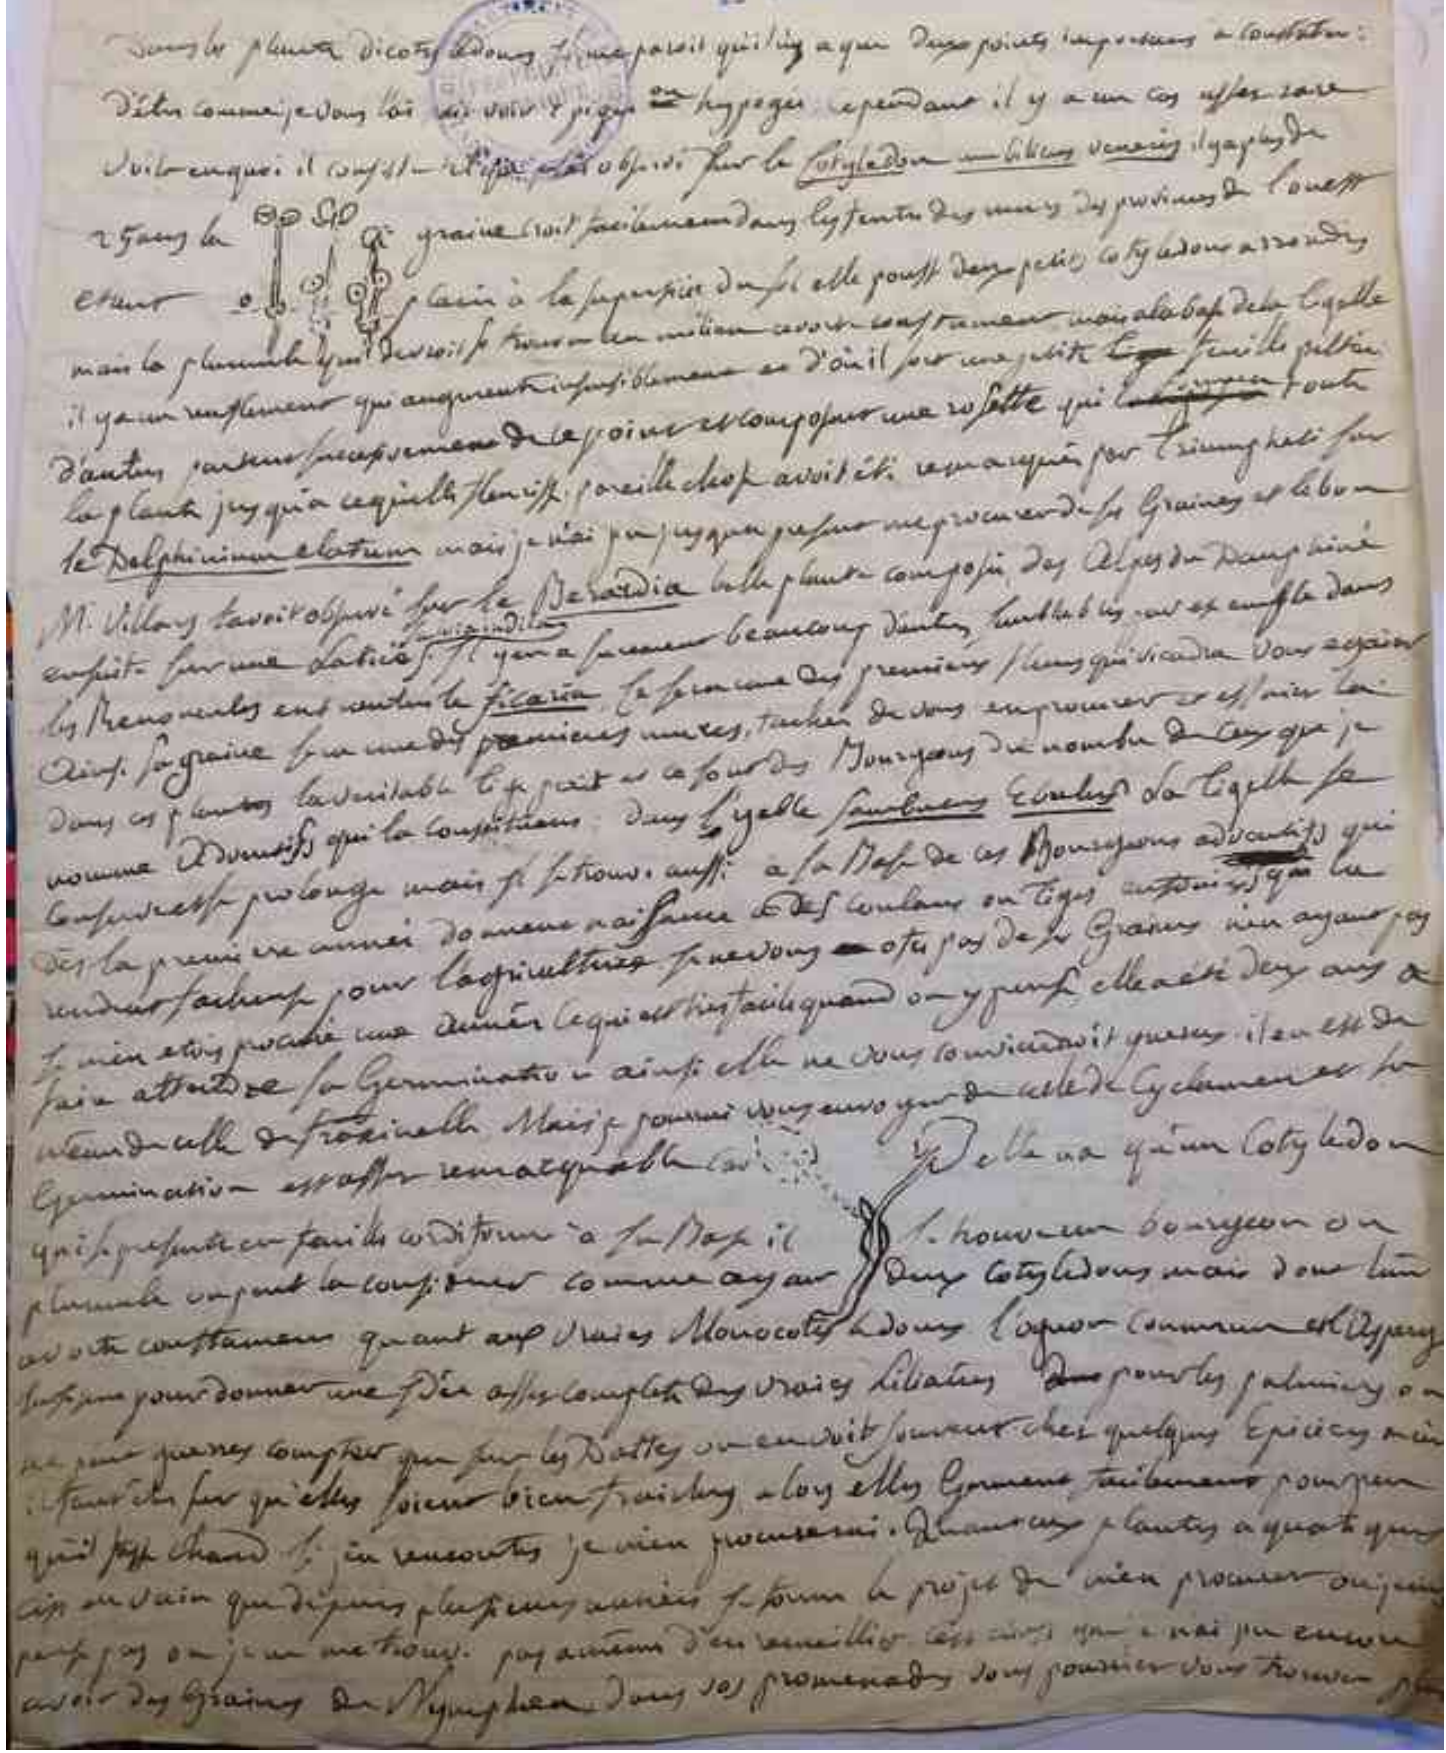 Dans les plantes dicotyledones il me paroit qu'il n'y a que deux points importans a constater:
d'etre comme je vous l'ai fait voir Epigés ou hypogés cependant il y a un cas assez rare
Voila en quoi il consiste observé sur le Cotyledon umbilicus veneris il y a plus de
25 ans la graine croit facilement dans les fentes des murs des provinces de l'ouest
etant placée à la superficie du sol elle pousse deux petits cotyledons arrondis
mais la plumule qui devroit se trouver au milieu avorte constament mais a la base de la tigelle
il y a un renflement qui augmente insensiblement et d'où il sort une petite feuille peltée
d'autres partent successivement de ce point et composent une rosette qui toute
la plante jusqu'a ce qu'elle fleurisse. pareille chose avoit été remarquée par Triumpheti sur
le Delphinium elatum mais je n'ai pu jusqu'a present me procurer de ses Graines et le bon
M. Villars l'avoit observé sur le Berardia belle plante composée des Alpes du Dauphiné
ensuite sur une il y en a surement beaucoup d'autres semblables par exemple dans
les Renoncules en e ventre le ficaria. Ce sera une des premieres fleurs qui viendra vous egaier
Ainsi sa graine sera une des premieres mures, tachez de vous en procurer et essaier la
dans ces plantes la veritable tige perit et ce sont des Bourgeons du nombre de ceux que je
nomme Adventifs qui la constituent. dans l'yeble Sambucus Ebulus La tigelle se
conserve et se prolonge mais il se trouve aussi a sa Base de ces Bourgeons adventifs qui
dès la premiere année donnent naissance a des coulans ou tiges qui la
rendent facheuse pour l'agriculture je ne vous ote pas de ses Graines n'en ayant pas
je m'en etois procuré une Année ce qui est tres facile quand on y pense elle a été deux ans a
faire attendre sa Germination ainsi elle ne vous conviendroit gueres. il en est de
meme de celle de fraxinelle. Mais je pourrai vous envoyer de celle de Cyclamen et sa
Germination est assez remarquable car elle n'a qu'un Cotyledon
qui se presente en feuille cordiforme à sa Base il se trouve un bourgeon ou
plumule on peut la considerer comme ayant deux Cotyledons mais dont l'un
avorte constament quant aux vraies Monocotyledones l'ognon commun et l'Asperge
suffisent pour donner une idée assez complete des vraies Liliacées pour les palmiers on
ne peut gueres compter que sur les Dattes on en voit souvent chez quelques Epiciers
il faut etre sur qu'elles soient bien fraiches, alors elles Germent facilement pour peu
qu'il fasse chaud si j'en rencontre je m'en procurerai. Quant aux plantes aquatiques
c'est en vain que depuis plusieurs années je forme le projet de m'en procurer
pense pas ou je ne me trouve pas a meme d'en recueillir. c'est ainsi que je n'ai pu encore
avoir des Graines de Nymphea. dans vos promenades vous pourriez vous trouver